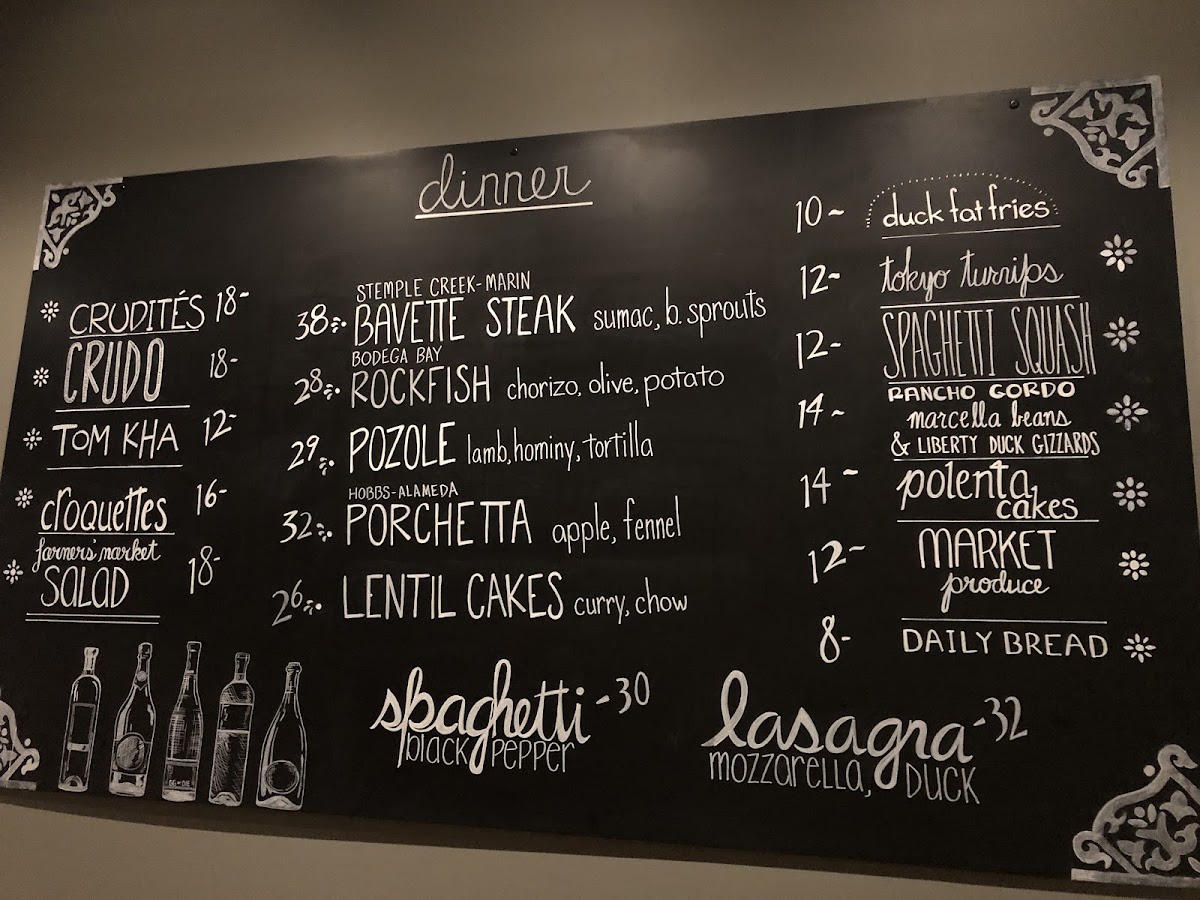 dinner
CRUDITÉS 18-
CRUDO 18-
TOM KHA 12-
croquettes 16-
farmers' market
SALAD 18-
STEMPLE CREEK-MARIN
38 BAVETTE STEAK sumac, b. sprouts
BODEGA BAY
28 ROCKFISH chorizo, olive, potato
29 POZOLE lamb, hominy, tortilla
HOBBS-ALAMEDA
32 PORCHETTA apple, fennel
26 LENTIL CAKES curry, chow
spaghetti -30
black PEPPER
lasagna -32
mozzarella, DUCK
10~ duck fat fries
12- tokyo turnips
12- SPAGHETTI SQUASH
RANCHO GORDO
14~ marcella beans
& LIBERTY DUCK GIZZARDS
14~ polenta
cakes
12- MARKET
produce
8- DAILY BREAD